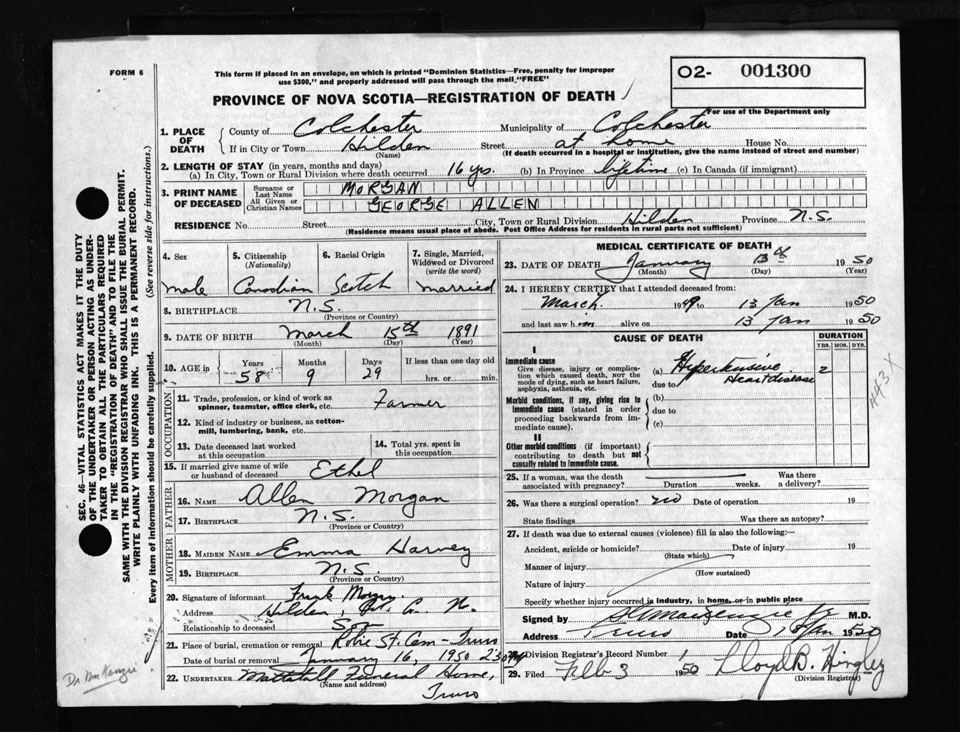 FORM 6
This form if placed in an envelope, on which is printed "Dominion Statistics—Free, penalty for improper
use $300," and properly addressed will pass through the mail "FREE"
O2- 001300
For use of the Department only
PROVINCE OF NOVA SCOTIA—REGISTRATION OF DEATH
1. PLACE OF DEATH
County of Colchester Municipality of Colchester
If in City or Town Hilden Street at home House No.
(Name) (If death occurred in a hospital or institution, give the name instead of street and number)
2. LENGTH OF STAY (in years, months and days)
(a) In City, Town or Rural Division where death occurred 16 yrs. (b) In Province lifetime (c) In Canada (if immigrant)
3. PRINT NAME OF DECEASED
Surname or Last Name MORGAN
All Given or Christian Names GEORGE ALLEN
RESIDENCE No. Street City, Town or Rural Division Hilden Province N.S.
(Residence means usual place of abode. Post Office Address for residents in rural parts not sufficient)
4. Sex
male
5. Citizenship (Nationality)
Canadian
6. Racial Origin
Scotch
7. Single, Married, Widowed or Divorced (write the word)
married
8. BIRTHPLACE N.S.
(Province or Country)
9. DATE OF BIRTH March 15th 1891
(Month) (Day) (Year)
10. AGE in Years Months Days If less than one day old
58 9 29 hrs. or min.
OCCUPATION
11. Trade, profession, or kind of work as
spinner, teamster, office clerk, etc. Farmer
12. Kind of industry or business, as cotton-
mill, lumbering, bank, etc.
13. Date deceased last worked
at this occupation
14. Total yrs. spent in
this occupation
15. If married give name of wife
or husband of deceased Ethel
FATHER
16. NAME Allen Morgan
17. BIRTHPLACE N.S.
(Province or Country)
MOTHER
18. MAIDEN NAME Emma Harvey
19. BIRTHPLACE N.S.
(Province or Country)
20. Signature of informant Frank
Address Hilden, Col. Co. N.
Relationship to deceased
21. Place of burial, cremation or removal Robie St. Cem - Truro
Date of burial or removal January 16, 1950
22. UNDERTAKER Mattatall Funeral Home,
(Name and address) Truro
MEDICAL CERTIFICATE OF DEATH
23. DATE OF DEATH January 13th 1950
(Month) (Day) (Year)
24. I HEREBY CERTIFY that I attended deceased from:
March 1949 to 13 Jan 1950
and last saw him alive on 13 Jan 1950
CAUSE OF DEATH
DURATION
YRS. MOS. DYS.
I
Immediate cause
Give disease, injury or complica-
tion which caused death, NOT the
mode of dying, such as heart failure,
asphyxia, asthenia, etc.
(a) Hypertensive 2
due to Heart disease
443 X
Morbid conditions, if any, giving rise to
immediate cause (stated in order
proceeding backwards from im-
mediate cause).
(b)
due to
(c)
II
Other morbid conditions (if important)
contributing to death but not
causally related to immediate cause.
25. If a woman, was the death
associated with pregnancy? Duration weeks. Was there
a delivery?
26. Was there a surgical operation? no Date of operation 19
State findings Was there an autopsy?
27. If death was due to external causes (violence) fill in also the following:—
Accident, suicide or homicide? Date of injury 19
(State which)
Manner of injury
(How sustained)
Nature of injury
Specify whether injury occurred in industry, in home, or in public place
Signed by M.D.
Address Truro Date Jan 1950
28. Division Registrar's Record Number 1
29. Filed Feb 3 1950 Lloyd B. Hingley
(Division Registrar)
SEC. 46—VITAL STATISTICS ACT MAKES IT THE DUTY
OF THE UNDERTAKER OR PERSON ACTING AS UNDER-
TAKER TO OBTAIN ALL THE PARTICULARS REQUIRED
IN THE "REGISTRATION OF DEATH" AND TO FILE THE
SAME WITH THE DIVISION REGISTRAR WHO SHALL ISSUE THE BURIAL PERMIT.
WRITE PLAINLY WITH UNFADING INK. THIS IS A PERMANENT RECORD.
Every item of information should be carefully supplied. (See reverse side for instructions.)
Dr. MacKenzie